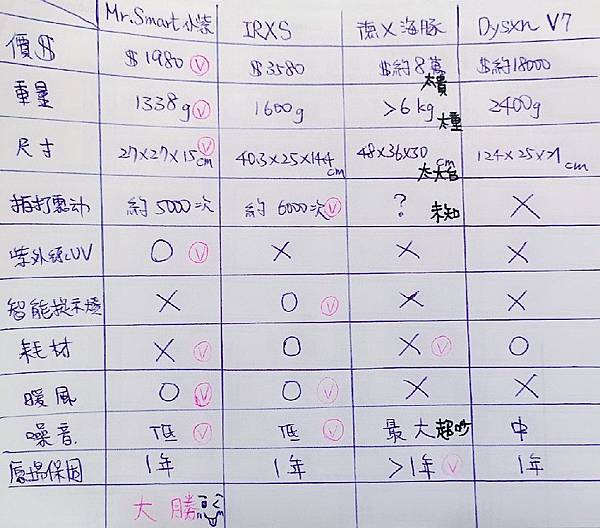 Mr.Smart 小紫 IRXS 德X海豚 Dysxn V7
價$ $1980 V $3580 $約8萬 太貴 $約18000
重量 1338g V 1600g >6kg 太重 2400g
尺寸 27×27×15cm V 40.3×25×14.4cm 48×36×30cm 太大台 124×25×21cm
拍打震动 約5000次 約6000次 V ? 未知 X
紫外線UV O V X X X
智能提示燈 X O V X X
耗材 X V O X V O
暖風 O V O V X X
噪音 低 V 低 V 最大 超吵 中
原場保固 1年 1年 >1年 V 1年
大勝